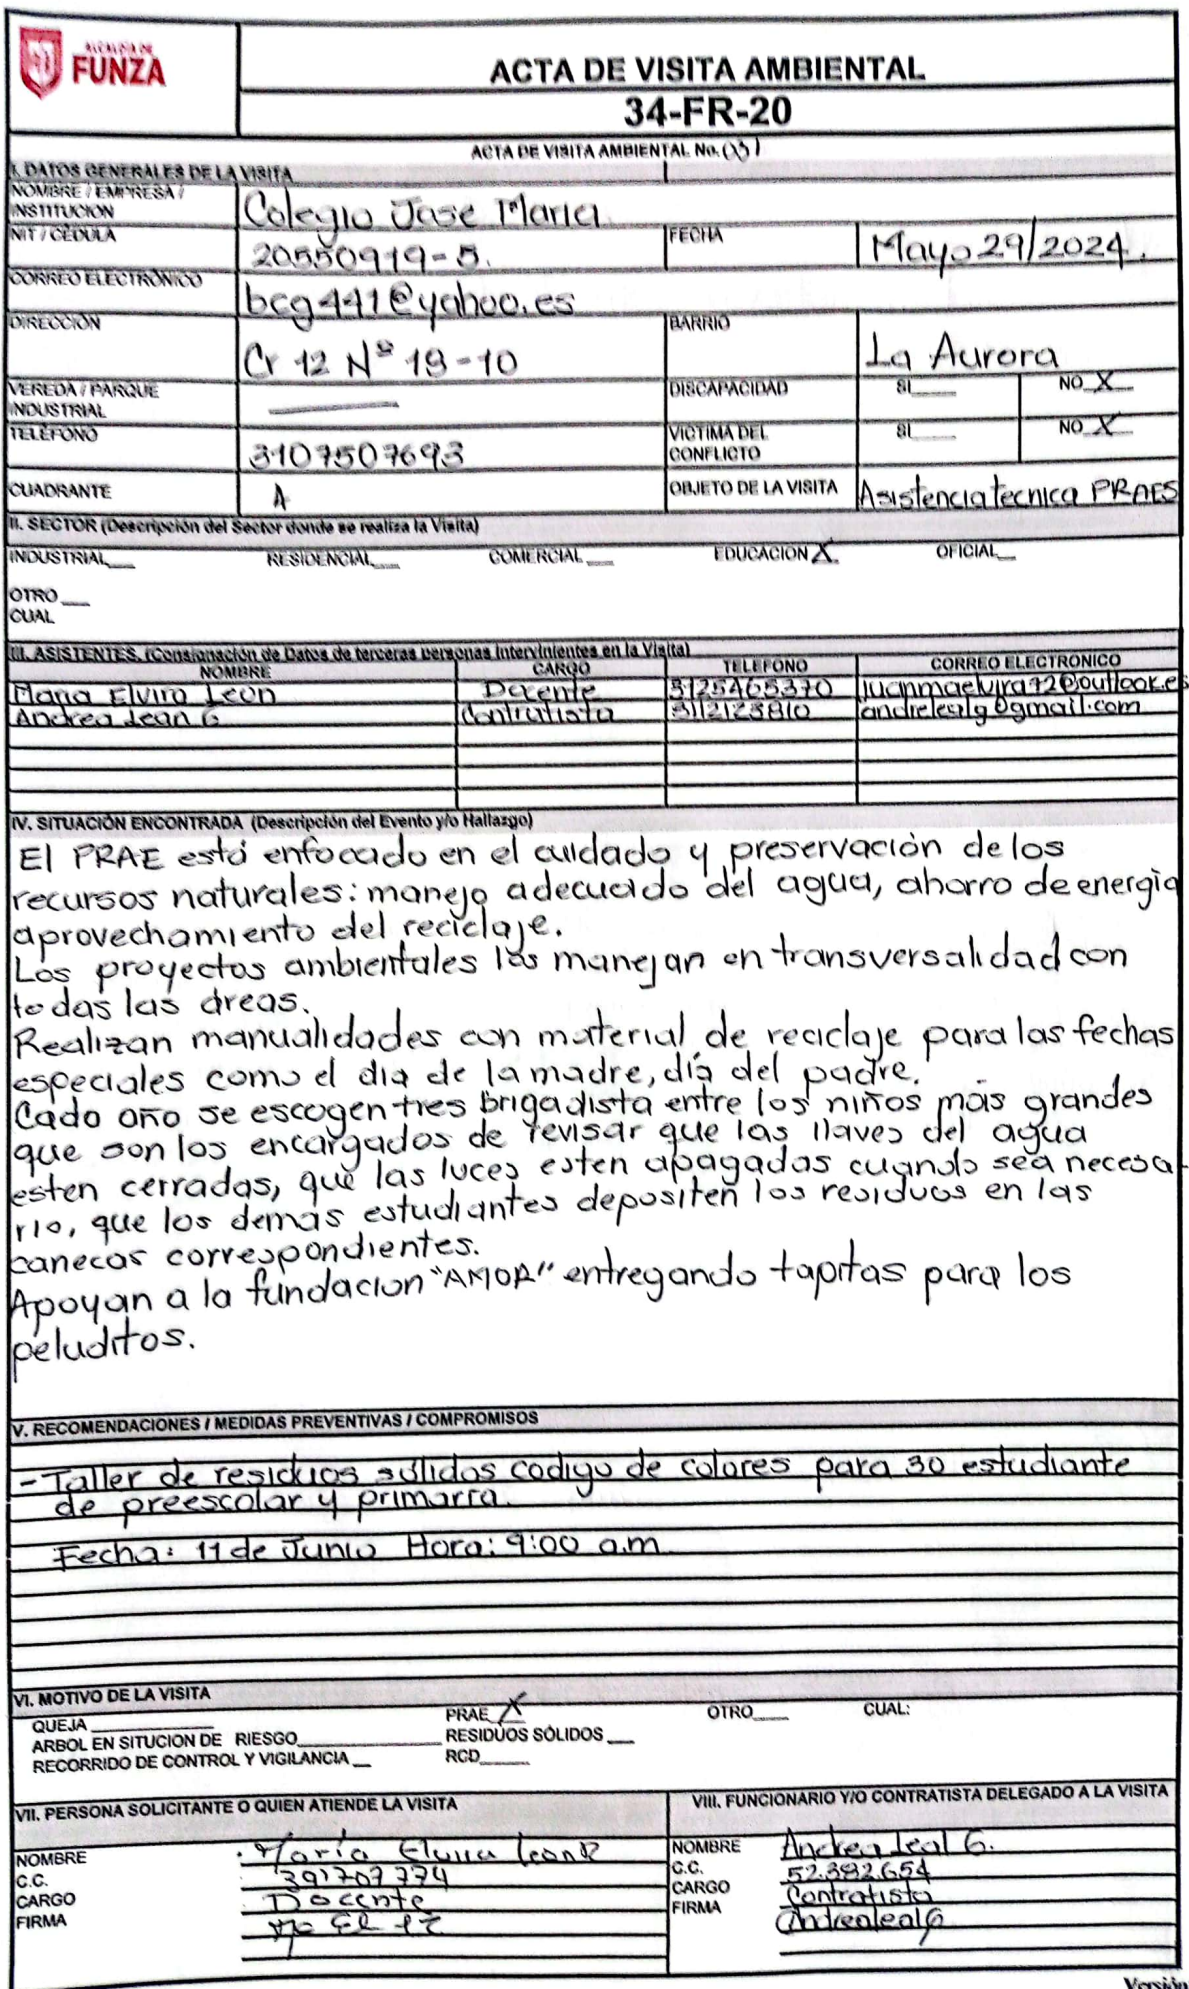 ALCALDÍA DE
FUNZA
ACTA DE VISITA AMBIENTAL
34-FR-20
ACTA DE VISITA AMBIENTAL No. 031
I. DATOS GENERALES DE LA VISITA
NOMBRE / EMPRESA / INSTITUCIÓN Colegio Jose Maria
NIT / CÉDULA 20550919-5. FECHA Mayo 29/2024.
CORREO ELECTRÓNICO bcg441@yahoo.es
DIRECCIÓN Cr 12 Nº 19-10 BARRIO La Aurora
VEREDA / PARQUE INDUSTRIAL DISCAPACIDAD SI___ NO X
TELÉFONO 3107507693 VICTIMA DEL CONFLICTO SI___ NO X
CUADRANTE A OBJETO DE LA VISITA Asistencia tecnica PRAES
II. SECTOR (Descripción del Sector donde se realiza la Visita)
INDUSTRIAL___ RESIDENCIAL___ COMERCIAL___ EDUCACION X OFICIAL__
OTRO___
CUAL
III. ASISTENTES. (Consignación de Datos de terceras personas intervinientes en la Visita)
NOMBRE CARGO TELEFONO CORREO ELECTRONICO
Maria Elvira Leon Docente 3125465370 juanmaelvira72@outlook.es
Andrea Leal G Contratista 3112123810 andrelealg@gmail.com
IV. SITUACIÓN ENCONTRADA (Descripción del Evento y/o Hallazgo)
El PRAE está enfocado en el cuidado y preservación de los
recursos naturales: manejo adecuado del agua, ahorro de energia
aprovechamiento del reciclaje.
Los proyectos ambientales los manejan en transversalidad con
todas las áreas.
Realizan manualidades con material de reciclaje para las fechas
especiales como el dia de la madre, día del padre.
Cada año se escogen tres brigadista entre los niños más grandes
que son los encargados de revisar que las llaves del agua
esten cerradas, que las luces esten apagadas cuando sea necesa-
rio, que los demás estudiantes depositen los residuos en las
canecas correspondientes.
Apoyan a la fundacion "AMOR" entregando tapitas para los
peluditos.
V. RECOMENDACIONES / MEDIDAS PREVENTIVAS / COMPROMISOS
- Taller de residuos sólidos codigo de colores para 30 estudiante
de preescolar y primaria.
Fecha: 11 de Junio Hora: 9:00 a.m
VI. MOTIVO DE LA VISITA
QUEJA___ PRAE X OTRO___ CUAL:
ARBOL EN SITUCION DE RIESGO___ RESIDUOS SÓLIDOS___
RECORRIDO DE CONTROL Y VIGILANCIA__ RCD___
VII. PERSONA SOLICITANTE O QUIEN ATIENDE LA VISITA VIII. FUNCIONARIO Y/O CONTRATISTA DELEGADO A LA VISITA
NOMBRE Maria Elvira Leon R NOMBRE Andrea Leal G.
C.C. 391707774 C.C. 52.382.654
CARGO Docente CARGO Contratista
FIRMA FIRMA Andrealeal G
Versión